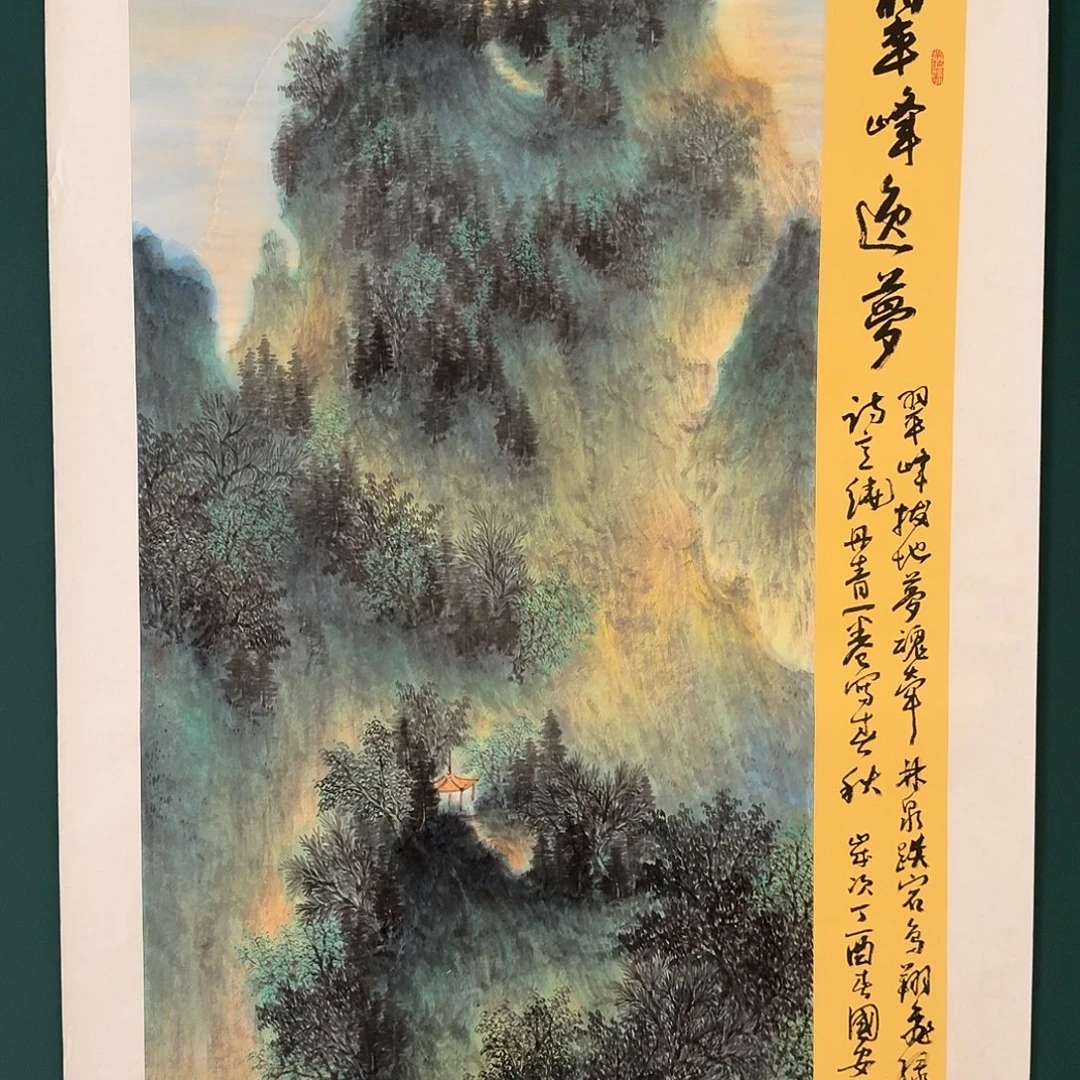 翠峰逸夢
翠峰拔地夢魂牽林泉跌宕鳥翔飛緑
詩意繞丹青一卷寫春秋 歲次丁酉春國安